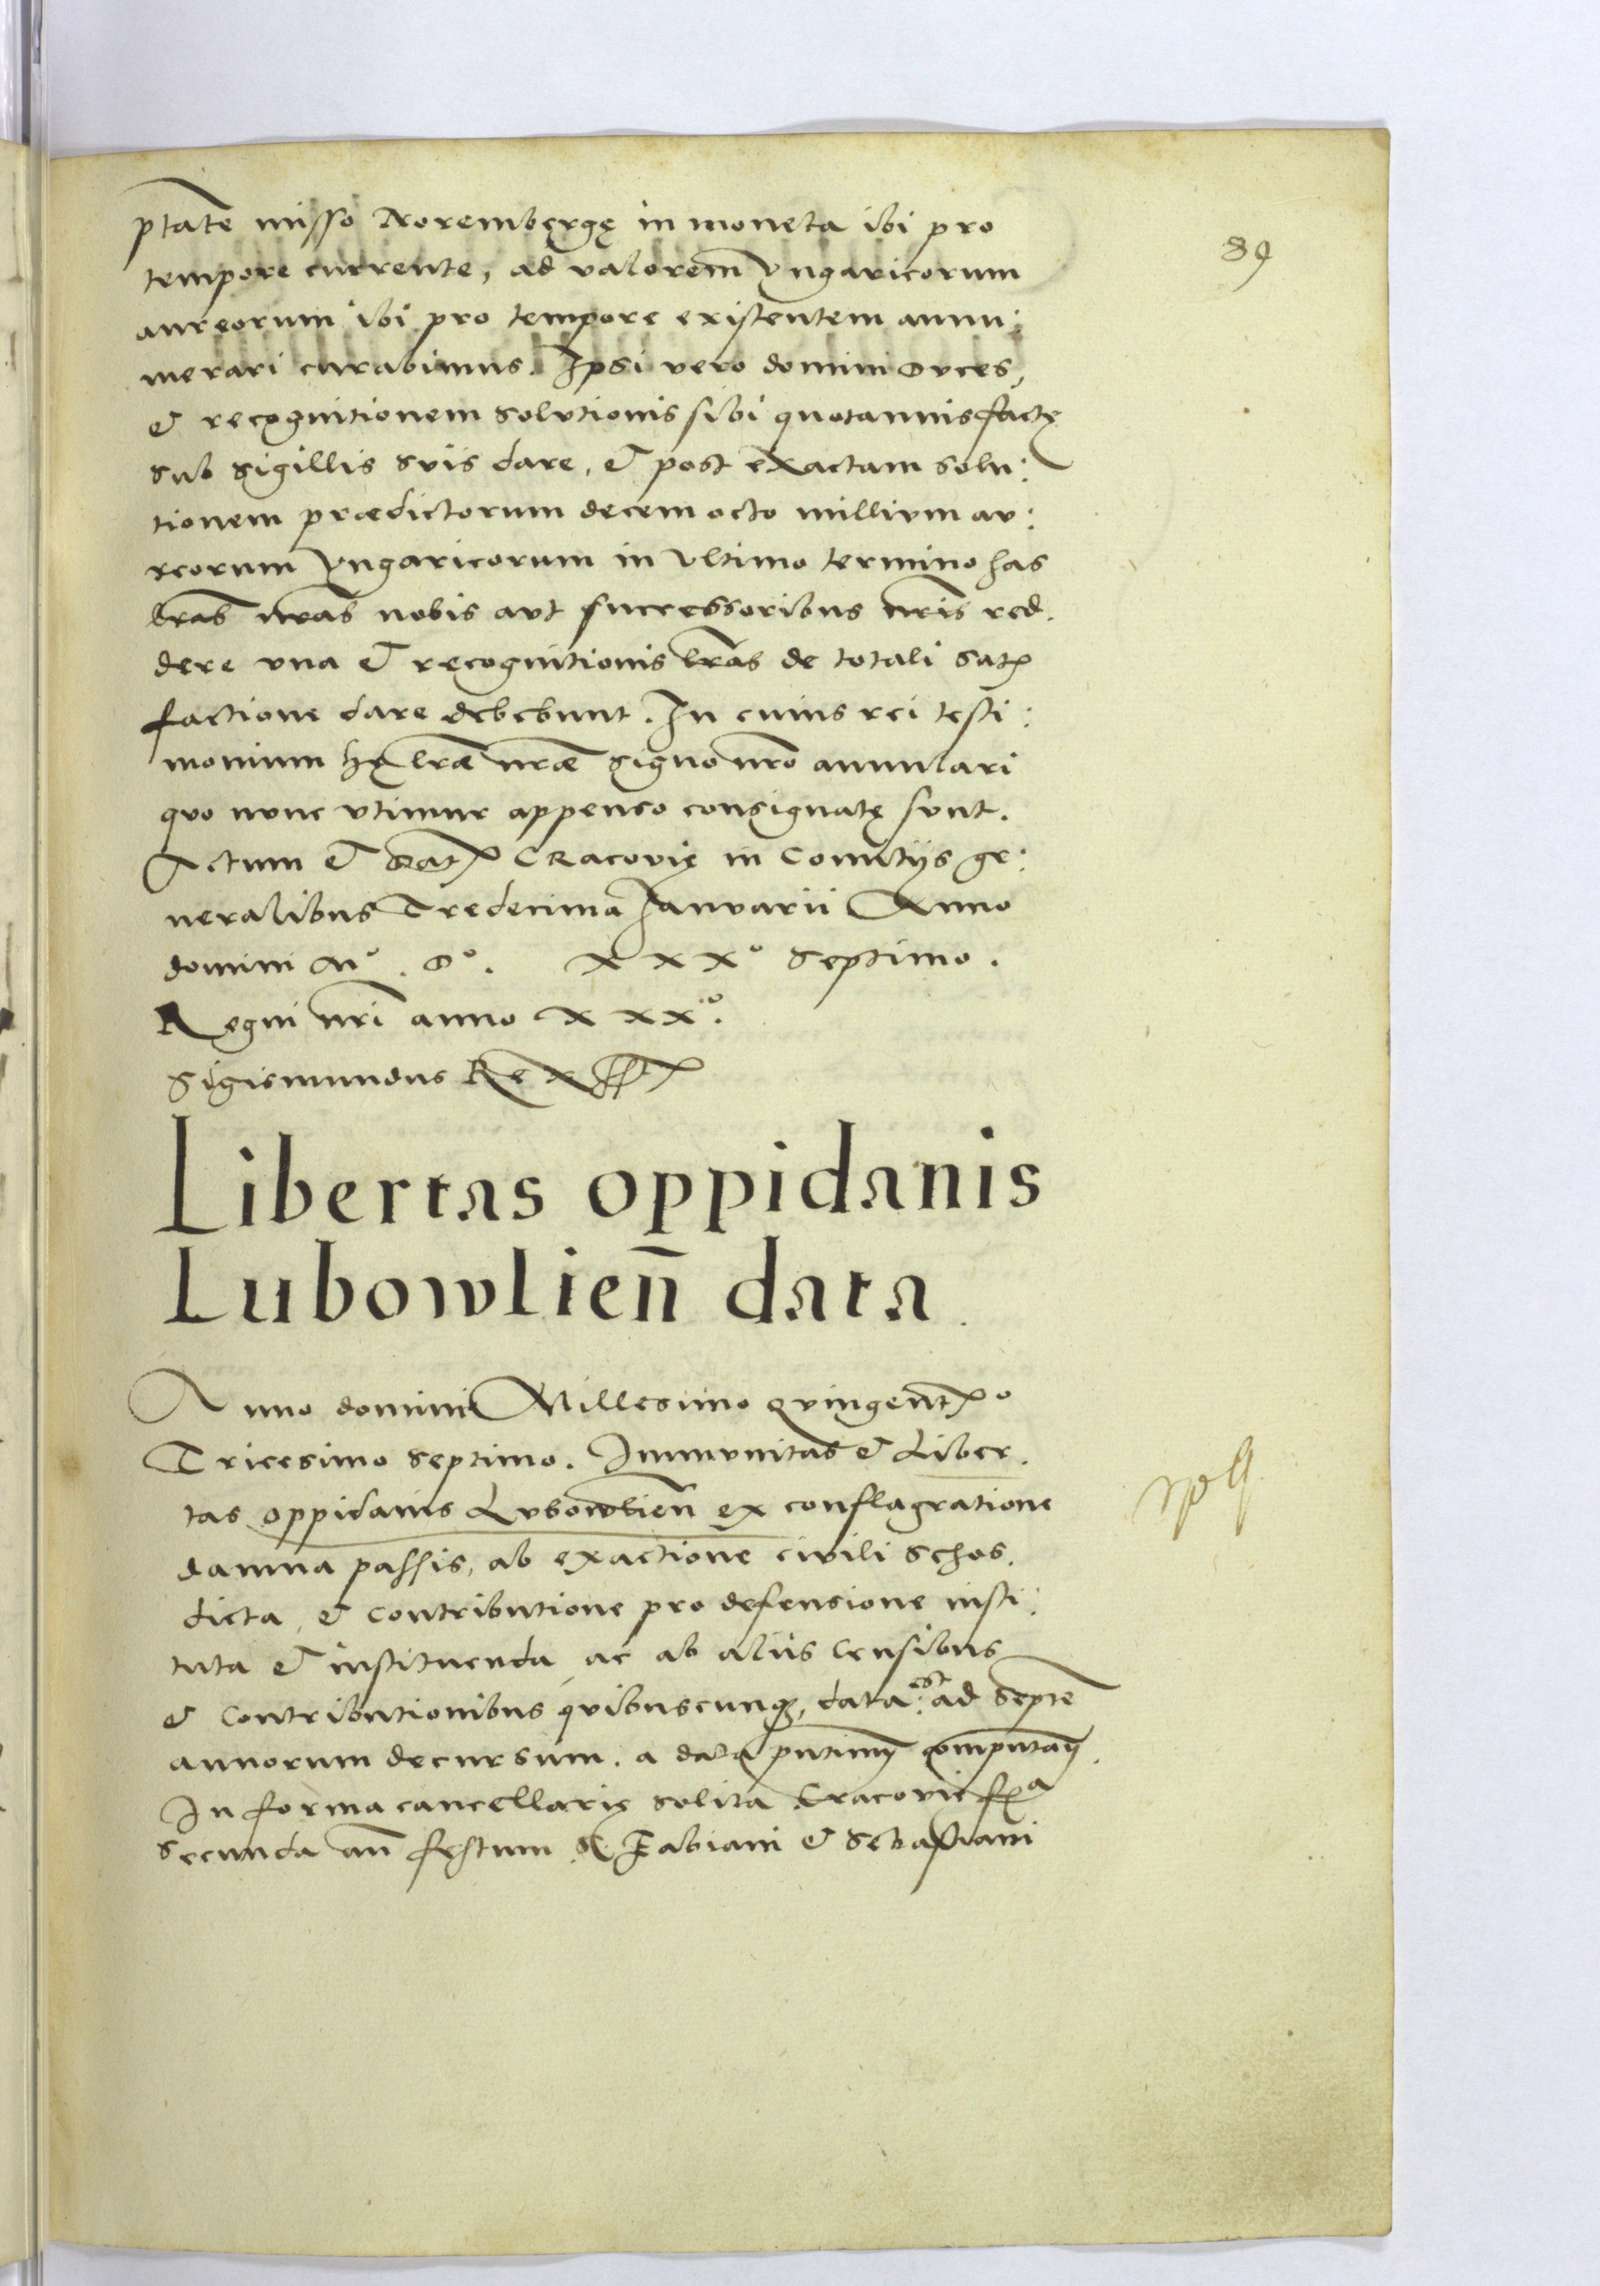 89
ptate misso Norembergę in moneta ibi pro
tempore currente, ad valorem Vngaricorum
aureorum ibi pro tempore existentem annu:
merari curabimus. Ipsi vero domini Duces,
et recognitionem solutionis sibi quotannis factę
sub sigillis suis dare, et post exactam solu:
tionem prædictorum decem octo millium au:
reorum Vngaricorum in vltimo termino has
lras nras nobis aut successoribus nris red.
dere vna et recognitionis lras de totali satis
factione dare debebunt. In cuius rei testi:
monium hę lræ nræ signo nro annulari
quo nunc vtimur appenso consignatę sunt.
Actum et Dat Cracovię in Comitijs ge:
neralibus Tredecima Januarii Anno
domini Mo. Do. xxxo septimo.
Regni nri anno xxxo.
Sigismundus Rex sst
Libertas oppidanis
Lubowlien̄ data
Anno domini Millesimo quingento
Tricesimo septimo. Immunitas et Liber.
tas oppidanis Lubowlien̄ ex conflagratione
damna passis, ab exactione civili schos.
dicta, et contributione pro defensione insti:
tuta et instituenda, ac ab aliis censibus
et contributionibus quibuscunq, data est: ad septe
annorum decursum. a data pntium computan.
In forma cancellarię solita Cracovię fra
secunda an̄ festum S Fabiani et Sebastiani